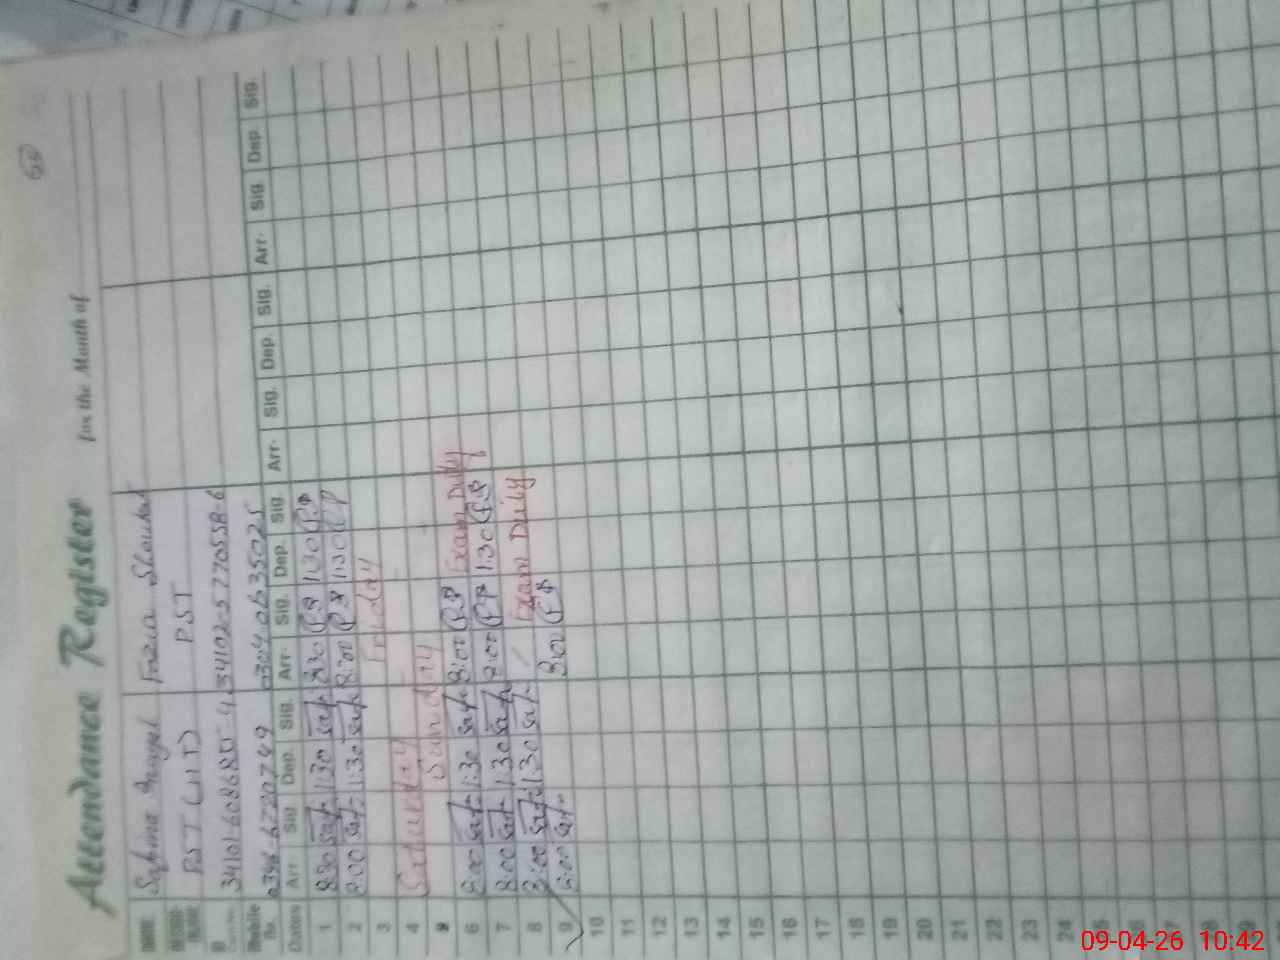 Attendance Register for the Month of
NAME
PST (HT) PST
34102-5770558-6
Mobile No. 0346-6720749 0304 0635025
Dates Arr. Sig. Dep. Sig. Arr. Sig. Dep. Sig. Arr. Sig. Dep. Sig. Arr. Sig. Dep. Sig.
1 8:30 Saf 1:30 Saf 8:30 F.S 1:30 F.S
2 8:00 Saf 1:30 Saf 8:00 F.S 1:30
3 Friday
4 Saturday
5 Sunday
6 8:00 Saf 1:30 Saf 8:00 F.S Exam Duty
7 8:00 Saf 1:30 Saf 8:00 F.S 1:30 F.S
8 8:00 Saf 1:30 Saf Exam Duty
9 8:00 Saf 8:00 F.S
10
11
12
13
14
15
16
17
18
19
20
21
22
23
24
25
26
27
28
29
09-04-26 10:42